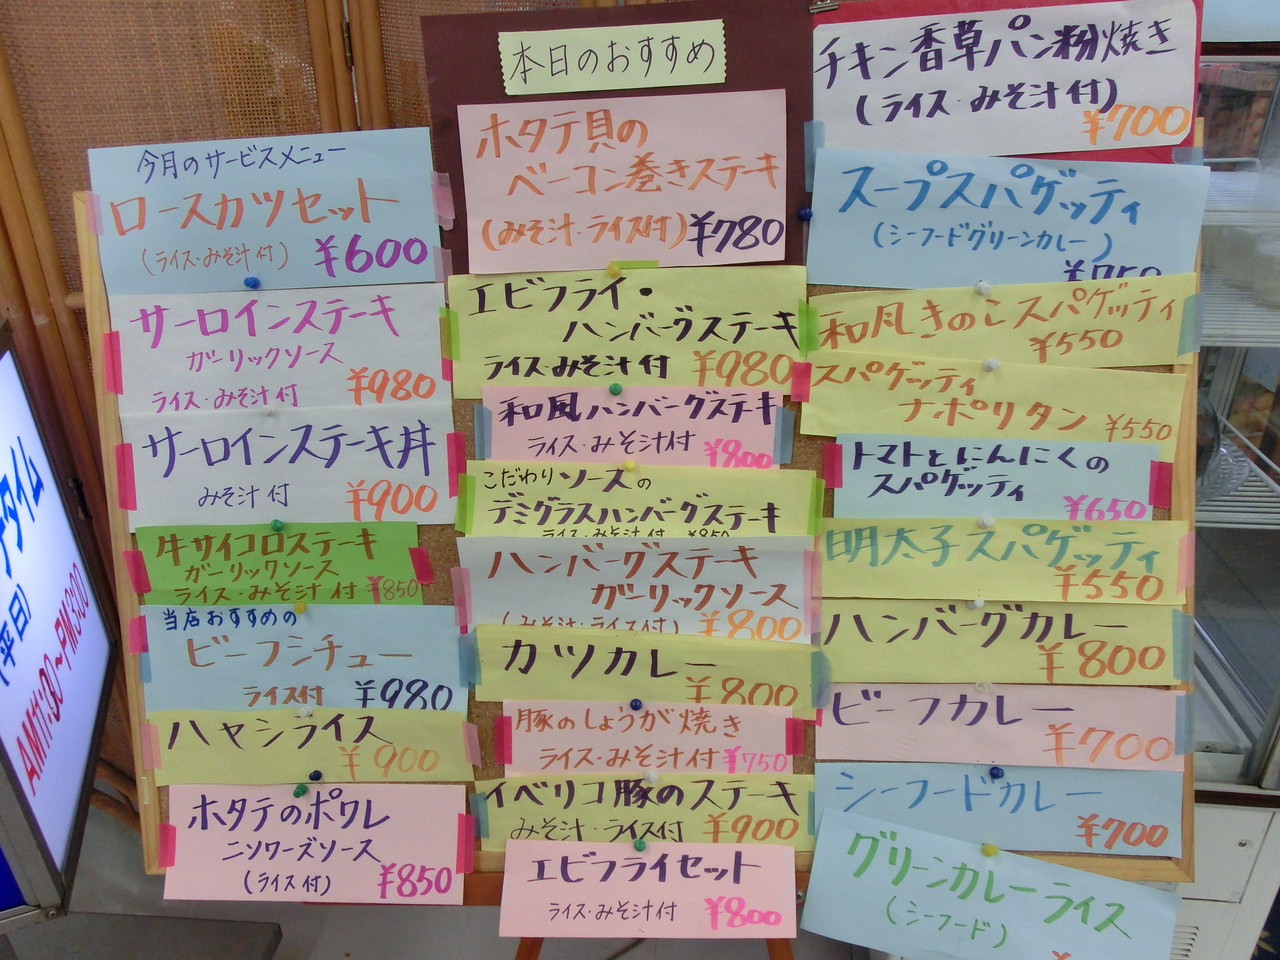 今月のサービスメニュー
ロースカツセット
(ライス・みそ汁付)
¥600
サーロインステーキ
ガーリックソース
ライス・みそ汁付
¥980
サーロインステーキ丼
みそ汁付
¥900
牛サイコロステーキ
ガーリックソース
ライス・みそ汁付 ¥850
当店おすすめの
ビーフシチュー
ライス付 ¥980
ハヤシライス
¥900
ホタテのポワレ
ニソワーズソース
(ライス付)
¥850
本日のおすすめ
ホタテ貝の
ベーコン巻きステーキ
(みそ汁・ライス付) ¥780
エビフライ・
ハンバーグステーキ
ライス・みそ汁付 ¥980
和風ハンバーグステーキ
ライス・みそ汁付 ¥800
こだわりソースの
デミグラスハンバーグステーキ
ライス・みそ汁付 ¥850
ハンバーグステーキ
ガーリックソース
(みそ汁・ライス付) ¥800
カツカレー
¥800
豚のしょうが焼き
ライス・みそ汁付 ¥750
イベリコ豚のステーキ
みそ汁・ライス付 ¥900
エビフライセット
ライス・みそ汁付 ¥800
チキン香草パン粉焼き
(ライス・みそ汁付)
¥700
スープスパゲッティ
(シーフードグリーンカレー)
¥750
和風きのこスパゲッティ
¥550
スパゲッティ
ナポリタン ¥550
トマトとにんにくの
スパゲッティ
¥650
明太子スパゲッティ
¥550
ハンバーグカレー
¥800
ビーフカレー
¥700
シーフードカレー
¥700
グリーンカレーライス
(シーフード)
タイム
(平日)
AM11:30~PM3:00